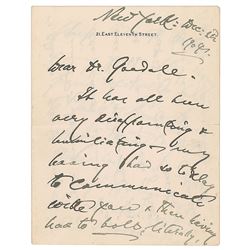 New York: Dec.
1904.
21, EAST ELEVENTH STREET.
Dear Dr. Goodale.
It has all been
very disappointing &
humiliating – my
having had so to delay
to communicate
with you & then having
had to bolt, literally,